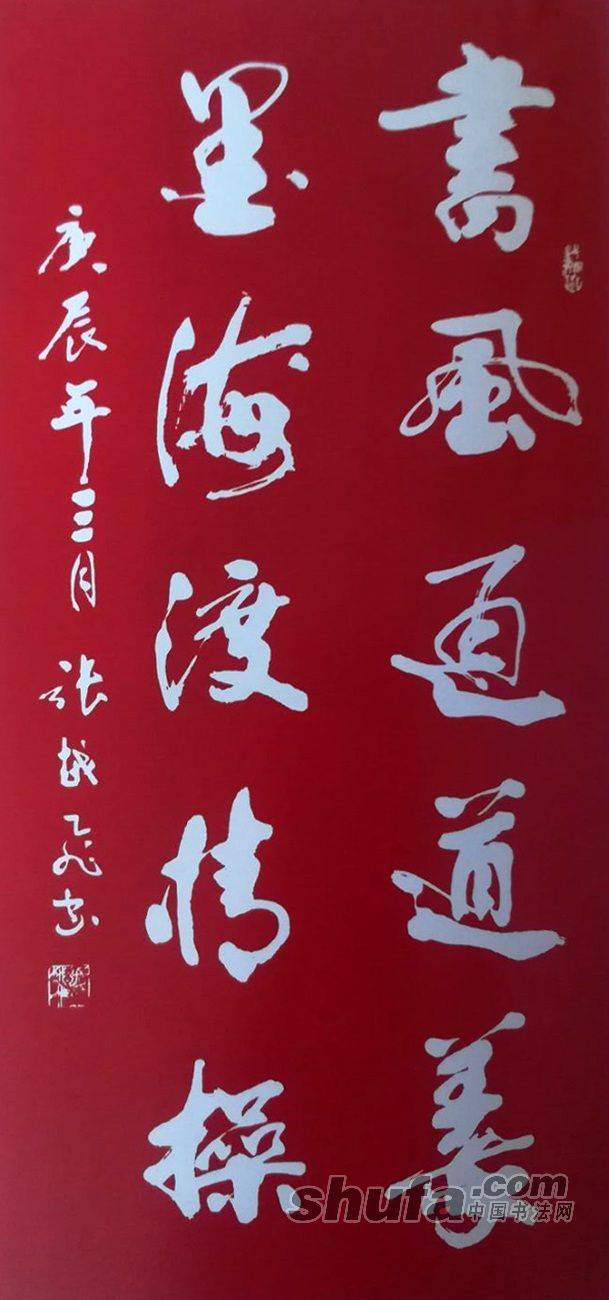 書風通道義
墨海渡情操
庚辰年三月 张越
shufa.com
中国书法网